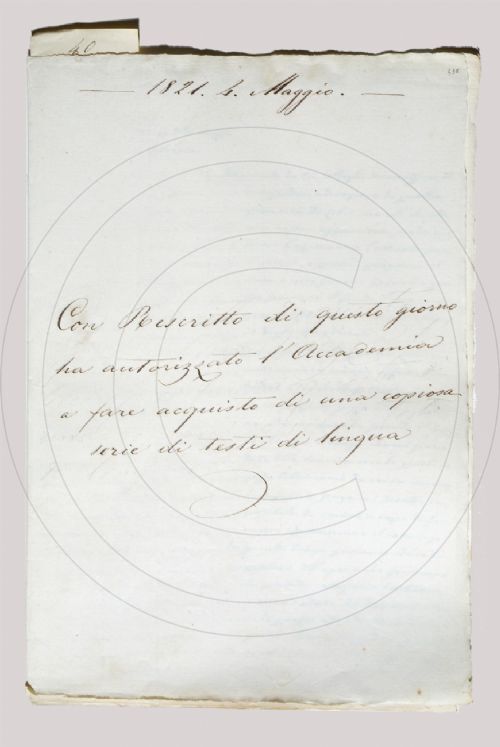 40
— 1821. 4. Maggio. —
Con Rescritto di questo giorno
ha autorizzato l'Accademia
a fare acquisto di una copiosa
serie di testi di lingua